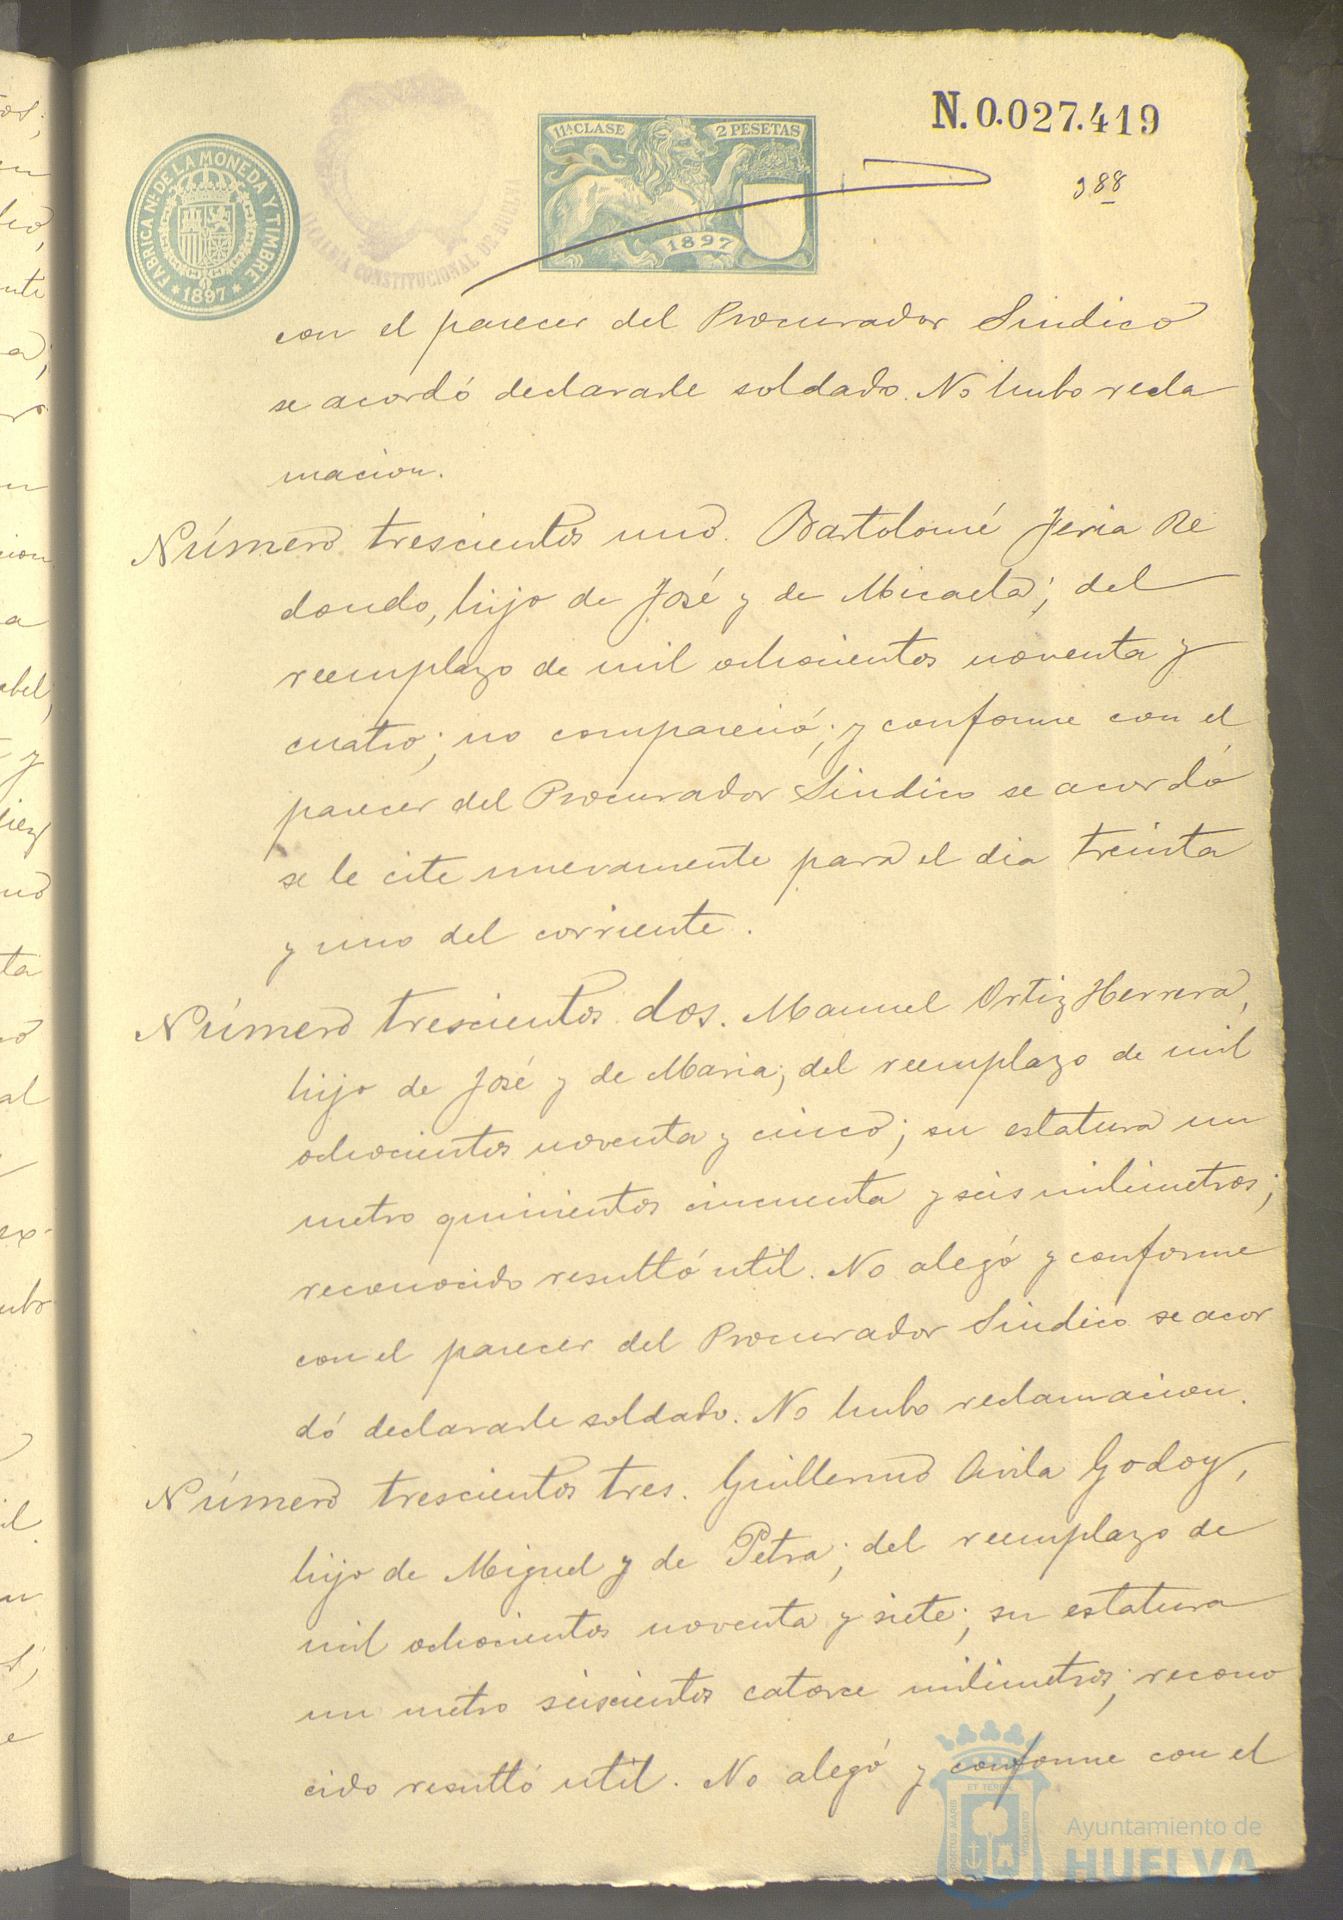 N. 0.027.419
388
FABRICA Nl. DE LA MONEDA Y TIMBRE
* 1897 *
ALCALDIA CONSTITUCIONAL DE HUELVA
11ª CLASE
2 PESETAS
1897
con el parecer del Procurador Sindico
se acordó declararle soldado. No hubo recla
macion.
Número trescientos uno. Bartolomé Feria Re
dondo, hijo de José y de Micaela; del
reemplazo de mil ochocientos noventa y
cuatro; no compareció; y conforme con el
parecer del Procurador Sindico se acordó
se le cite nuevamente para el dia treinta
y uno del corriente.
Número trescientos dos. Manuel Ortiz Herrera,
hijo de José y de Maria; del reemplazo de mil
ochocientos noventa y cinco; su estatura un
metro quinientos cincuenta y seis milimetros;
reconocido resultó util. No alegó y conforme
con el parecer del Procurador Sindico se acor
dó declararle soldado. No hubo reclamacion.
Número trescientos tres. Guillermo Avila Godoy,
hijo de Miguel y de Petra; del reemplazo de
mil ochocientos noventa y siete; su estatura
un metro seiscientos catorce milimetros; recono
cido resultó util. No alegó y conforme con el
Ayuntamiento de
HUELVA